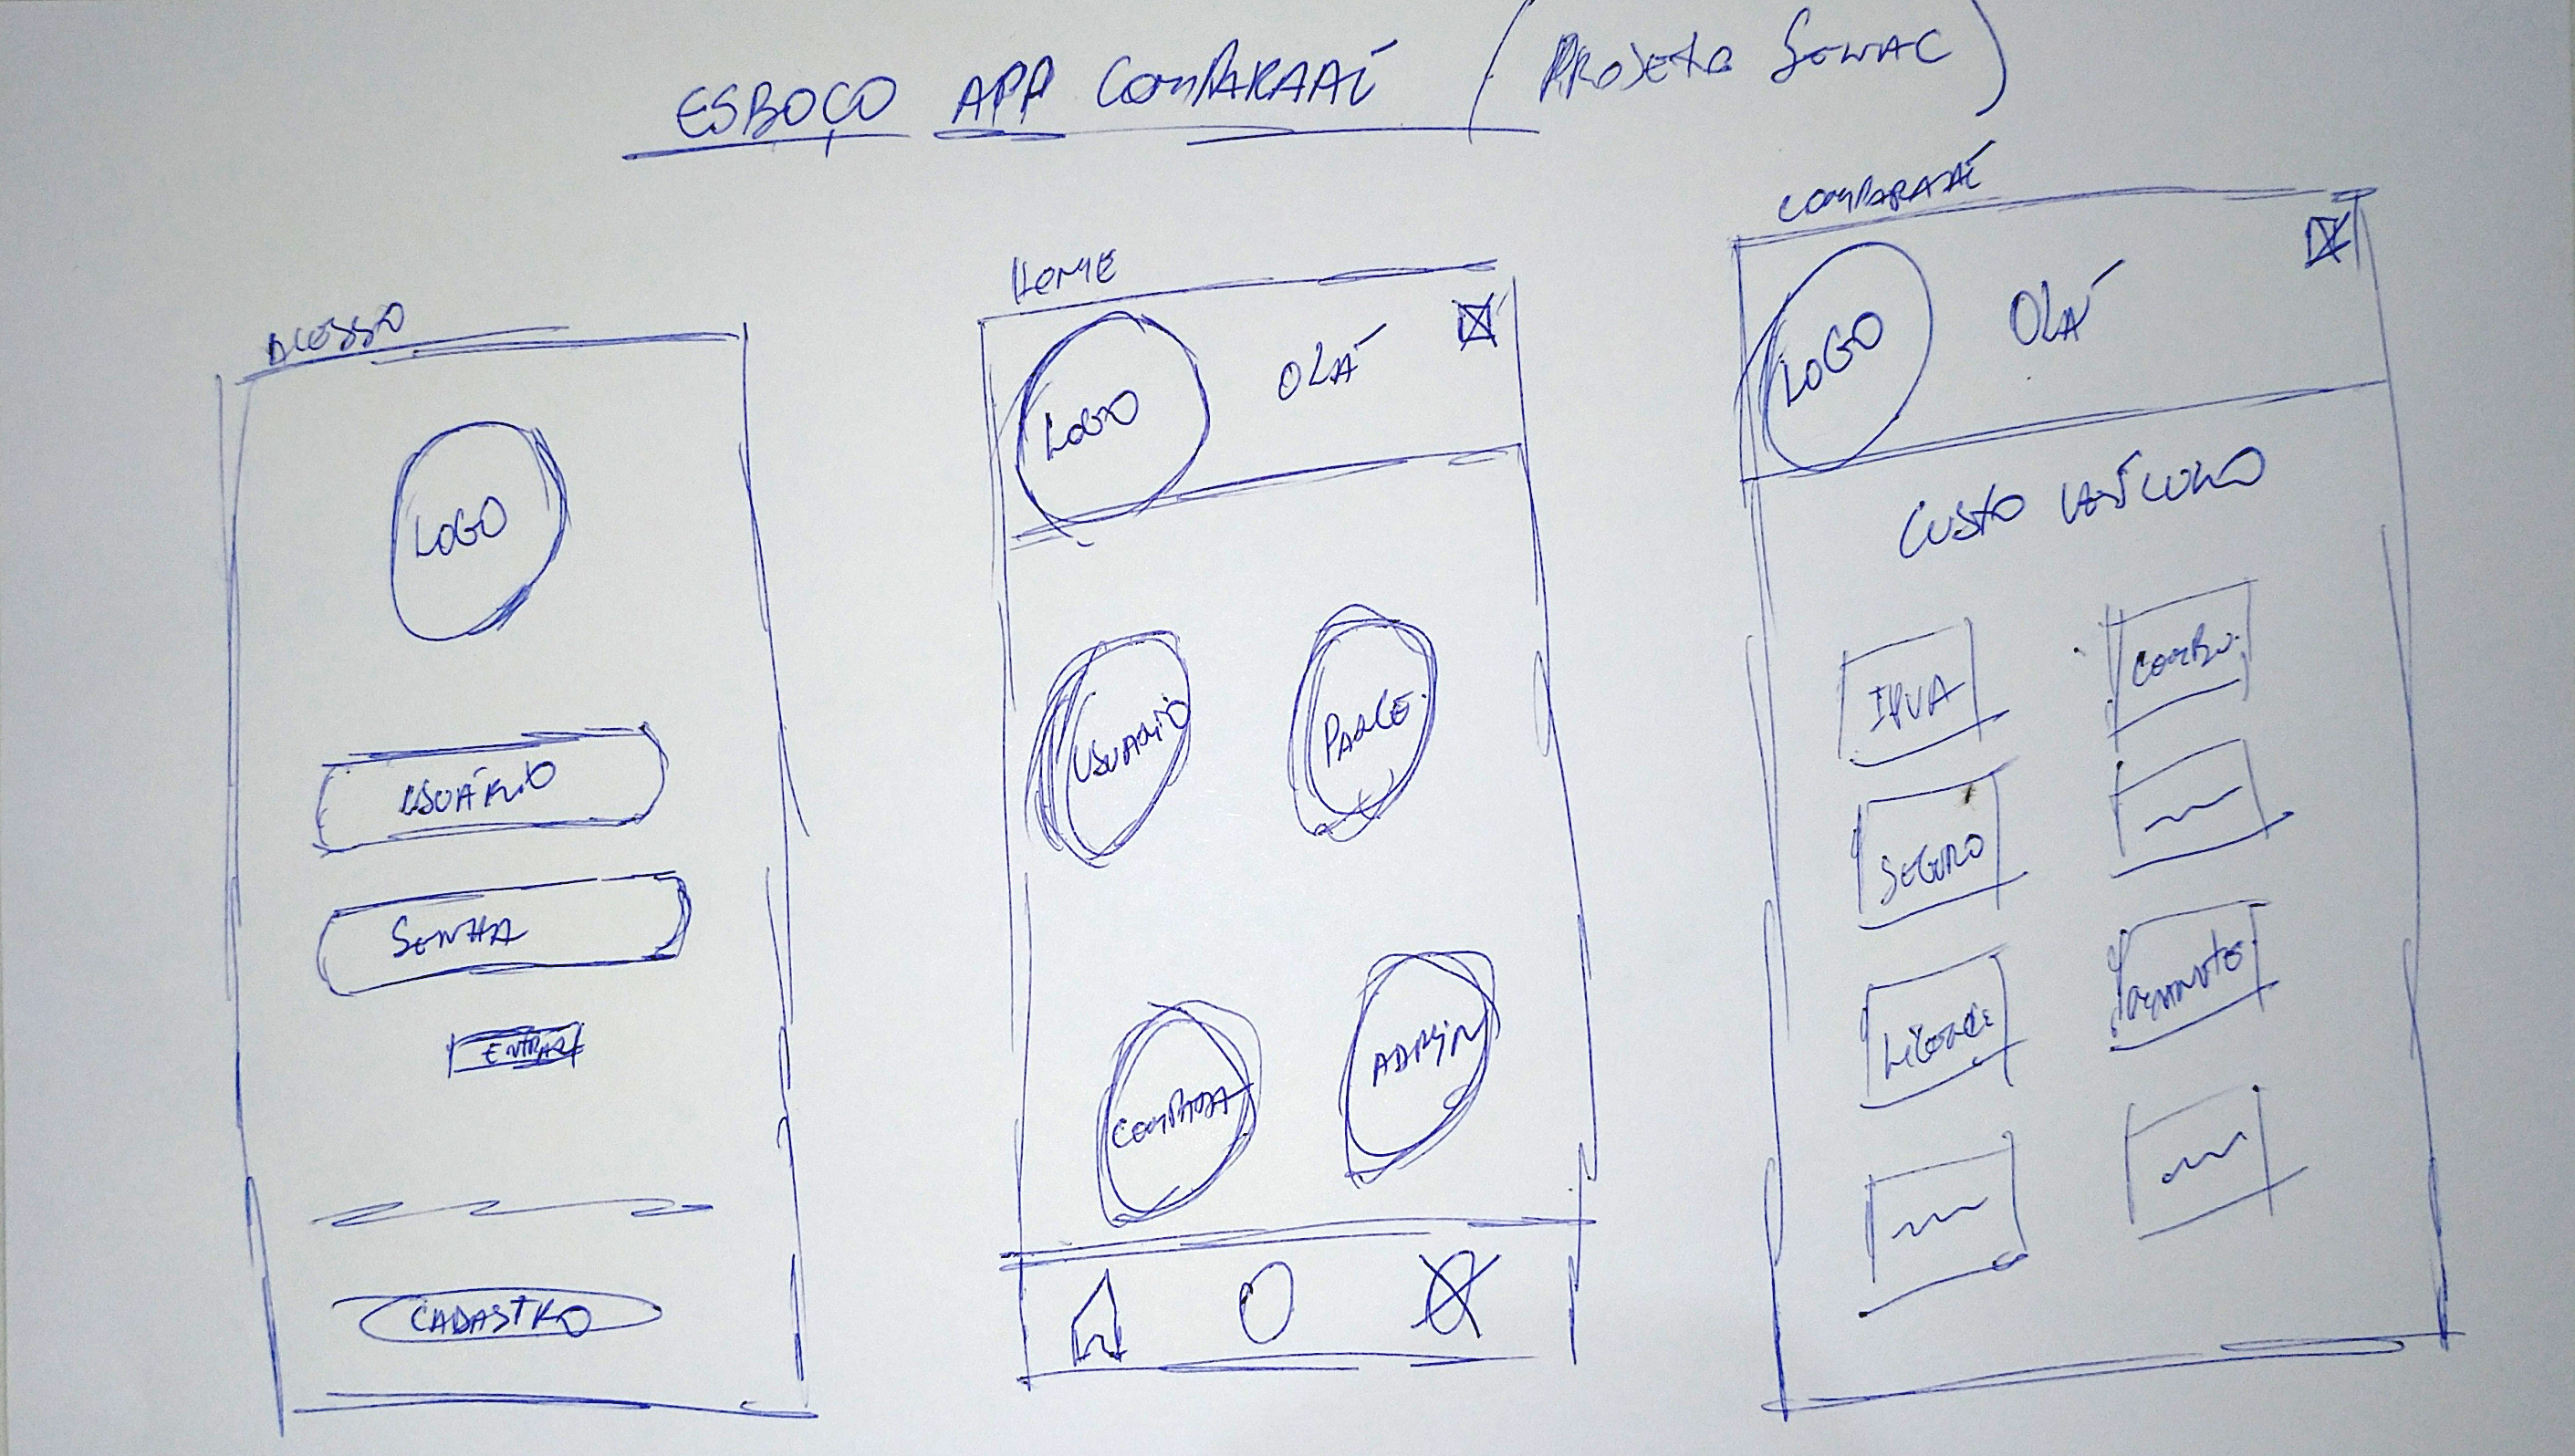 ESBOÇO APP COMPARAAÍ (PROJETO SENAC)
ACESSO
LOGO
USUÁRIO
SENHA
ENTRAR
CADASTRO
HOME
LOGO OLÁ
USUARIO PARCE.
COMPARA ADMIN
COMPARAAÍ
LOGO OLÁ
CUSTO VEÍCULO
IPVA COMBU.
SEGURO
LICENCI